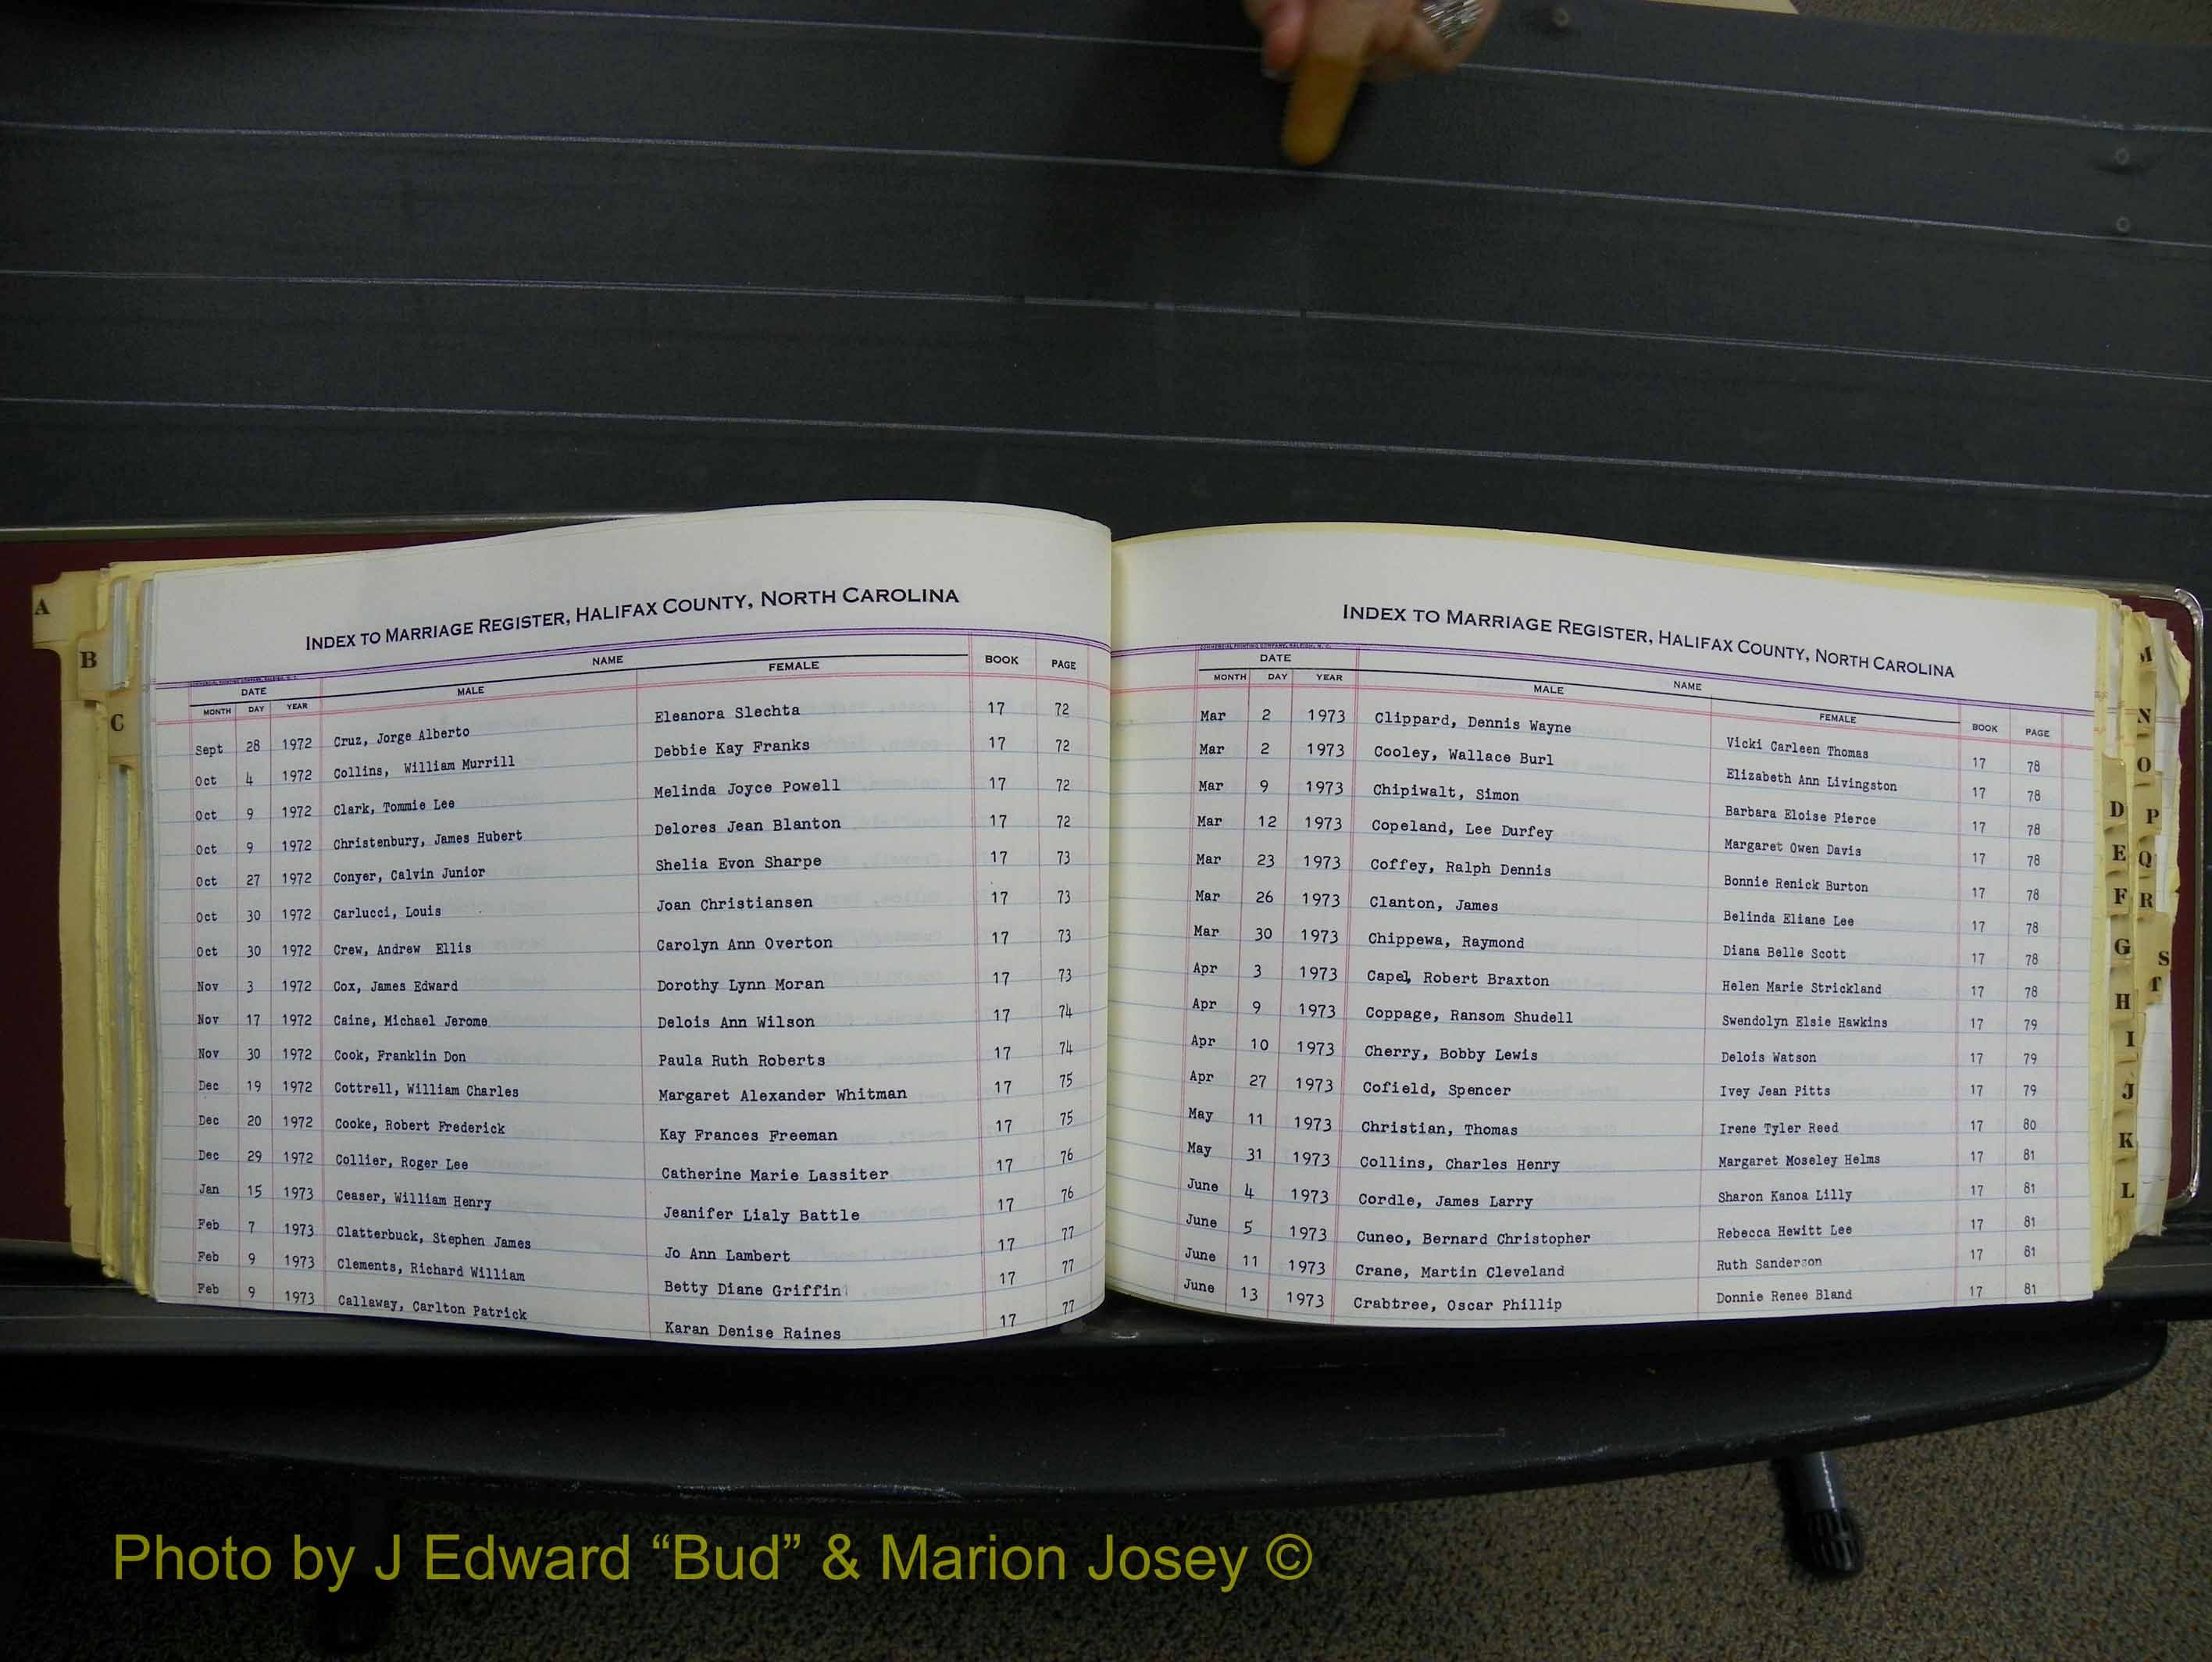 INDEX TO MARRIAGE REGISTER, HALIFAX COUNTY, NORTH CAROLINA
DATE NAME BOOK PAGE
MONTH DAY YEAR MALE FEMALE
Sept 28 1972 Cruz, Jorge Alberto Eleanora Slechta 17 72
Oct 4 1972 Collins, William Murrill Debbie Kay Franks 17 72
Oct 9 1972 Clark, Tommie Lee Melinda Joyce Powell 17 72
Oct 9 1972 Christenbury, James Hubert Delores Jean Blanton 17 72
Oct 27 1972 Conyer, Calvin Junior Shelia Evon Sharpe 17 73
Oct 30 1972 Carlucci, Louis Joan Christiansen 17 73
Oct 30 1972 Crew, Andrew Ellis Carolyn Ann Overton 17 73
Nov 3 1972 Cox, James Edward Dorothy Lynn Moran 17 73
Nov 17 1972 Caine, Michael Jerome Delois Ann Wilson 17 74
Nov 30 1972 Cook, Franklin Don Paula Ruth Roberts 17 74
Dec 19 1972 Cottrell, William Charles Margaret Alexander Whitman 17 75
Dec 20 1972 Cooke, Robert Frederick Kay Frances Freeman 17 75
Dec 29 1972 Collier, Roger Lee Catherine Marie Lassiter 17 76
Jan 15 1973 Ceaser, William Henry Jeanifer Lialy Battle 17 76
Feb 7 1973 Clatterbuck, Stephen James Jo Ann Lambert 17 77
Feb 9 1973 Clements, Richard William Betty Diane Griffin 17 77
Feb 9 1973 Callaway, Carlton Patrick Karan Denise Raines 17 77
INDEX TO MARRIAGE REGISTER, HALIFAX COUNTY, NORTH CAROLINA
DATE NAME BOOK PAGE
MONTH DAY YEAR MALE FEMALE
Mar 2 1973 Clippard, Dennis Wayne Vicki Carleen Thomas 17 78
Mar 2 1973 Cooley, Wallace Burl Elizabeth Ann Livingston 17 78
Mar 9 1973 Chipiwalt, Simon Barbara Eloise Pierce 17 78
Mar 12 1973 Copeland, Lee Durfey Margaret Owen Davis 17 78
Mar 23 1973 Coffey, Ralph Dennis Bonnie Renick Burton 17 78
Mar 26 1973 Clanton, James Belinda Eliane Lee 17 78
Mar 30 1973 Chippewa, Raymond Diana Belle Scott 17 78
Apr 3 1973 Capel, Robert Braxton Helen Marie Strickland 17 78
Apr 9 1973 Coppage, Ransom Shudell Swendolyn Elsie Hawkins 17 79
Apr 10 1973 Cherry, Bobby Lewis Delois Watson 17 79
Apr 27 1973 Cofield, Spencer Ivey Jean Pitts 17 79
May 11 1973 Christian, Thomas Irene Tyler Reed 17 80
May 31 1973 Collins, Charles Henry Margaret Moseley Helms 17 81
June 4 1973 Cordle, James Larry Sharon Kanoa Lilly 17 81
June 5 1973 Cuneo, Bernard Christopher Rebecca Hewitt Lee 17 81
June 11 1973 Crane, Martin Cleveland Ruth Sanderson 17 81
June 13 1973 Crabtree, Oscar Phillip Donnie Renee Bland 17 81
A
B
C
D
E
F
G
H
I
J
K
L
M
N
O
P
Q
R
S
T
Photo by J Edward “Bud” & Marion Josey ©